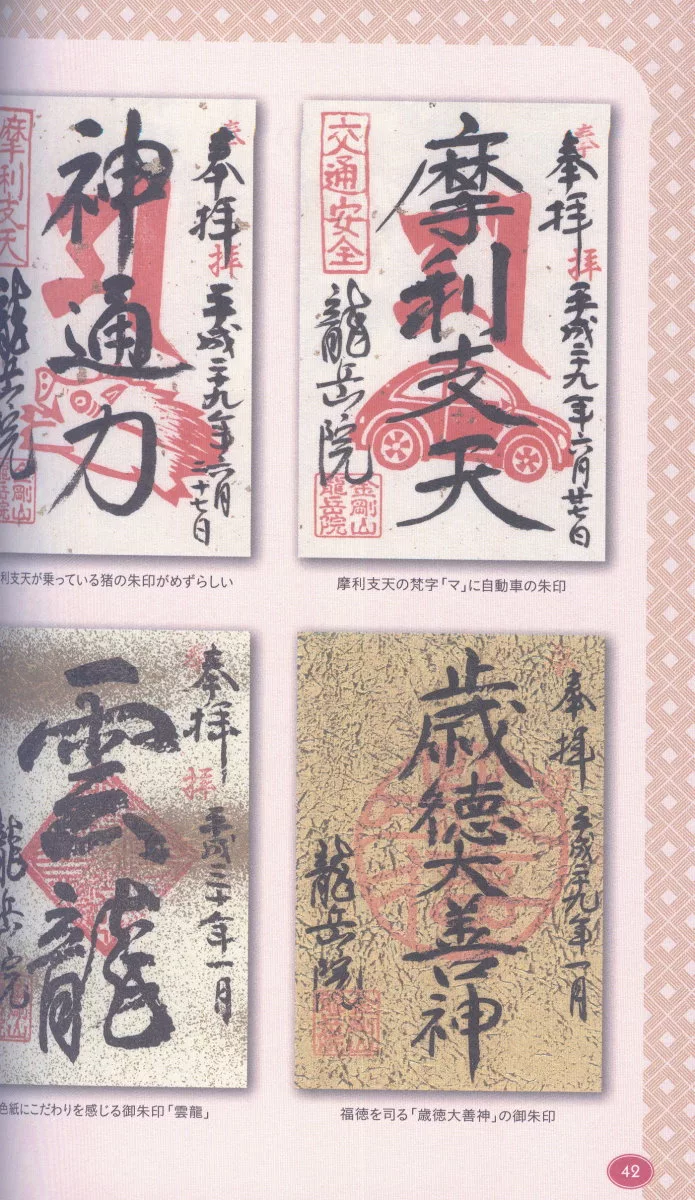 奉拝
平成二十九年六月廿七日
摩利支天
交通安全
龍岳院
金剛山
龍岳院
摩利支天の梵字「マ」に自動車の朱印
奉拝
平成二十九年六月
二十七日
神通力
摩利支天
龍岳院
金剛山
龍岳院
利支天が乗っている猪の朱印がめずらしい
奉拝
平成二十九年一月
歳徳大善神
龍岳院
福徳を司る「歳徳大善神」の御朱印
奉拝
平成三十年一月
雲龍
龍岳院
色紙にこだわりを感じる御朱印「雲龍」
42